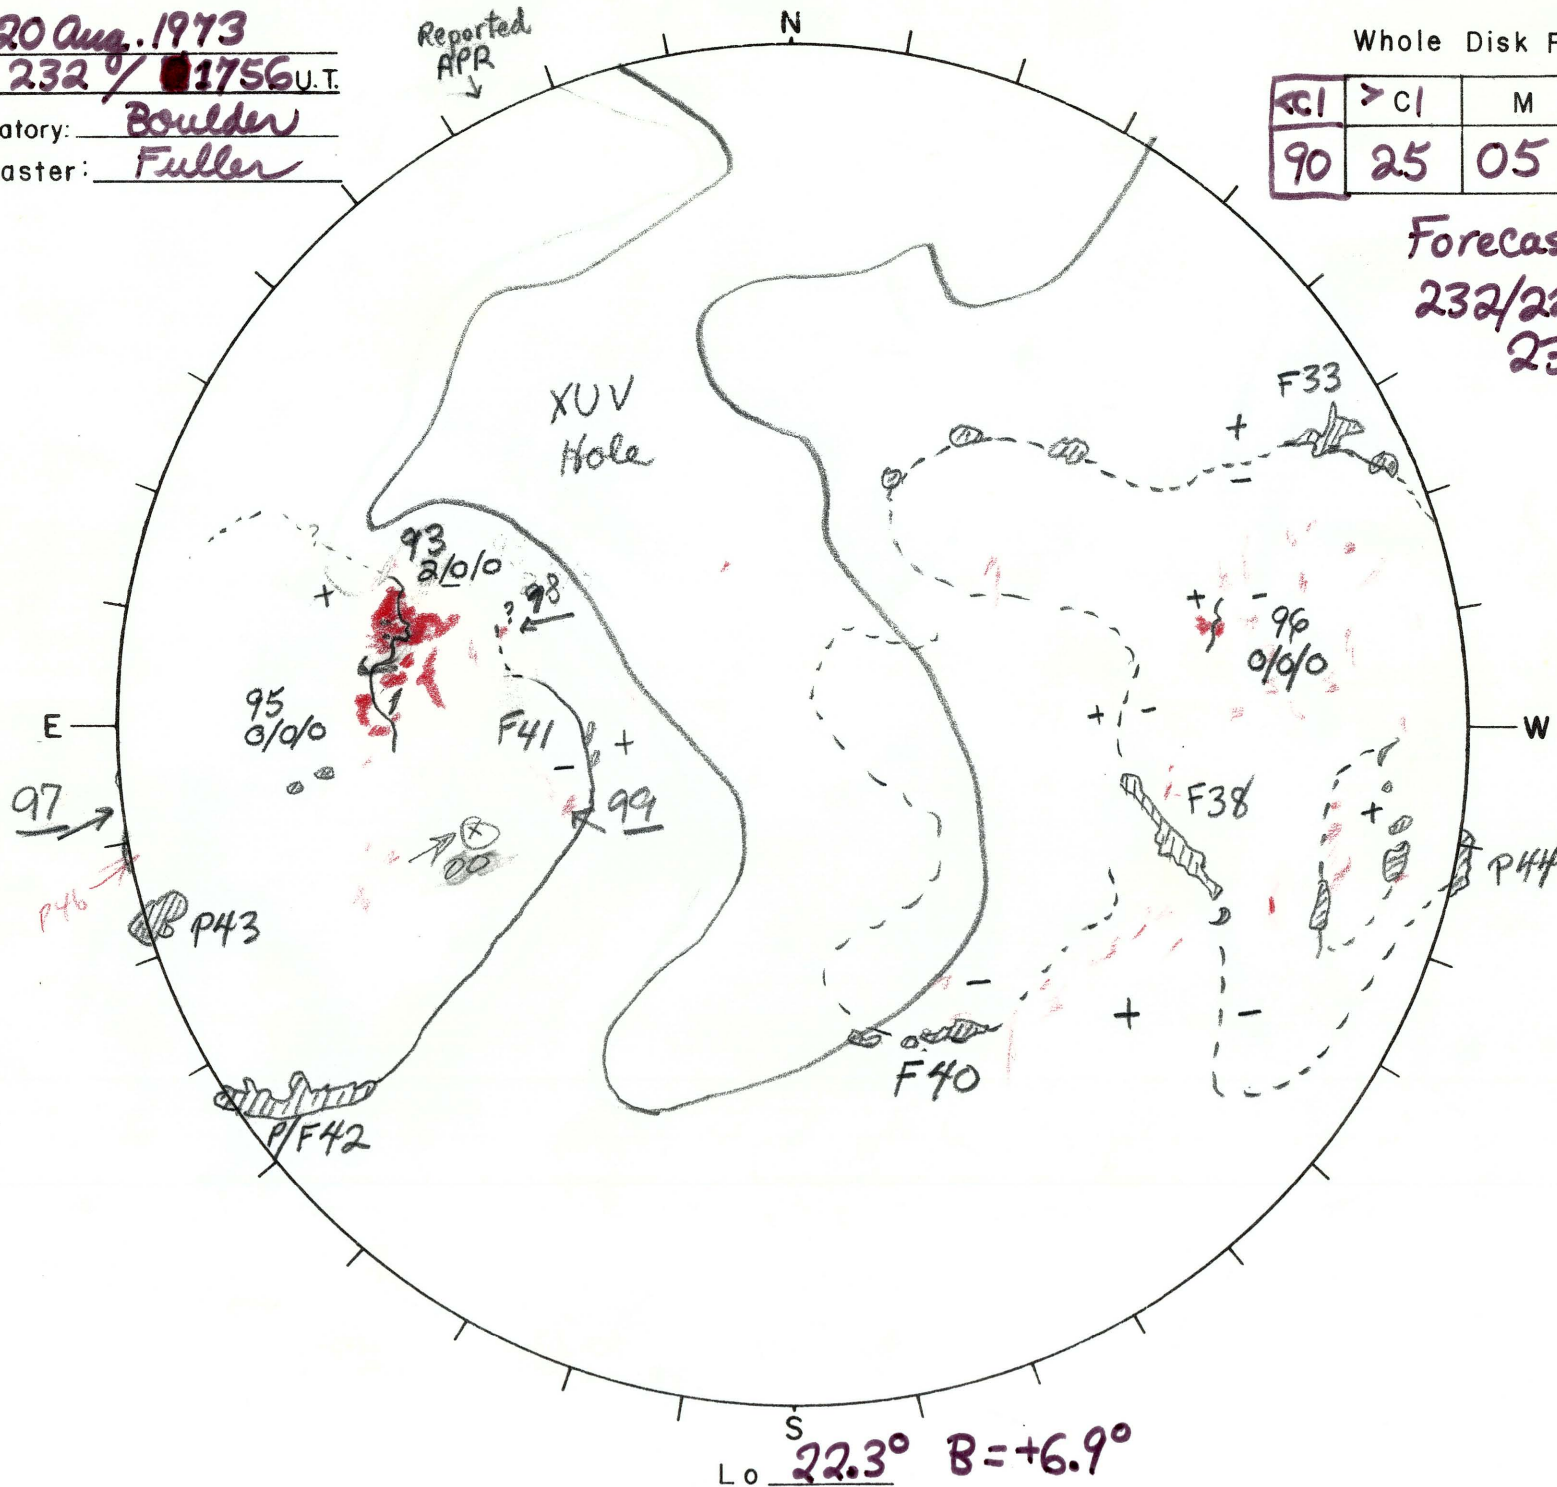 20 Aug. 1973
232 / 1756 U.T.
atory: Boulder
aster: Fuller
Reported
APR
N
Whole Disk F
<C1 >C1 M
90 25 05
Forecas
232/22
23
XUV
Hole
F33
+
-
93
2/0/0
?
+
? 98
+ -
96
0/0/0
95
0/0/0
F41
+
-
+ -
E
W
97
99
F38
+
x
00
P46
P43
P44
-
+
-
F40
P/F42
S
Lo 22.3° B=+6.9°